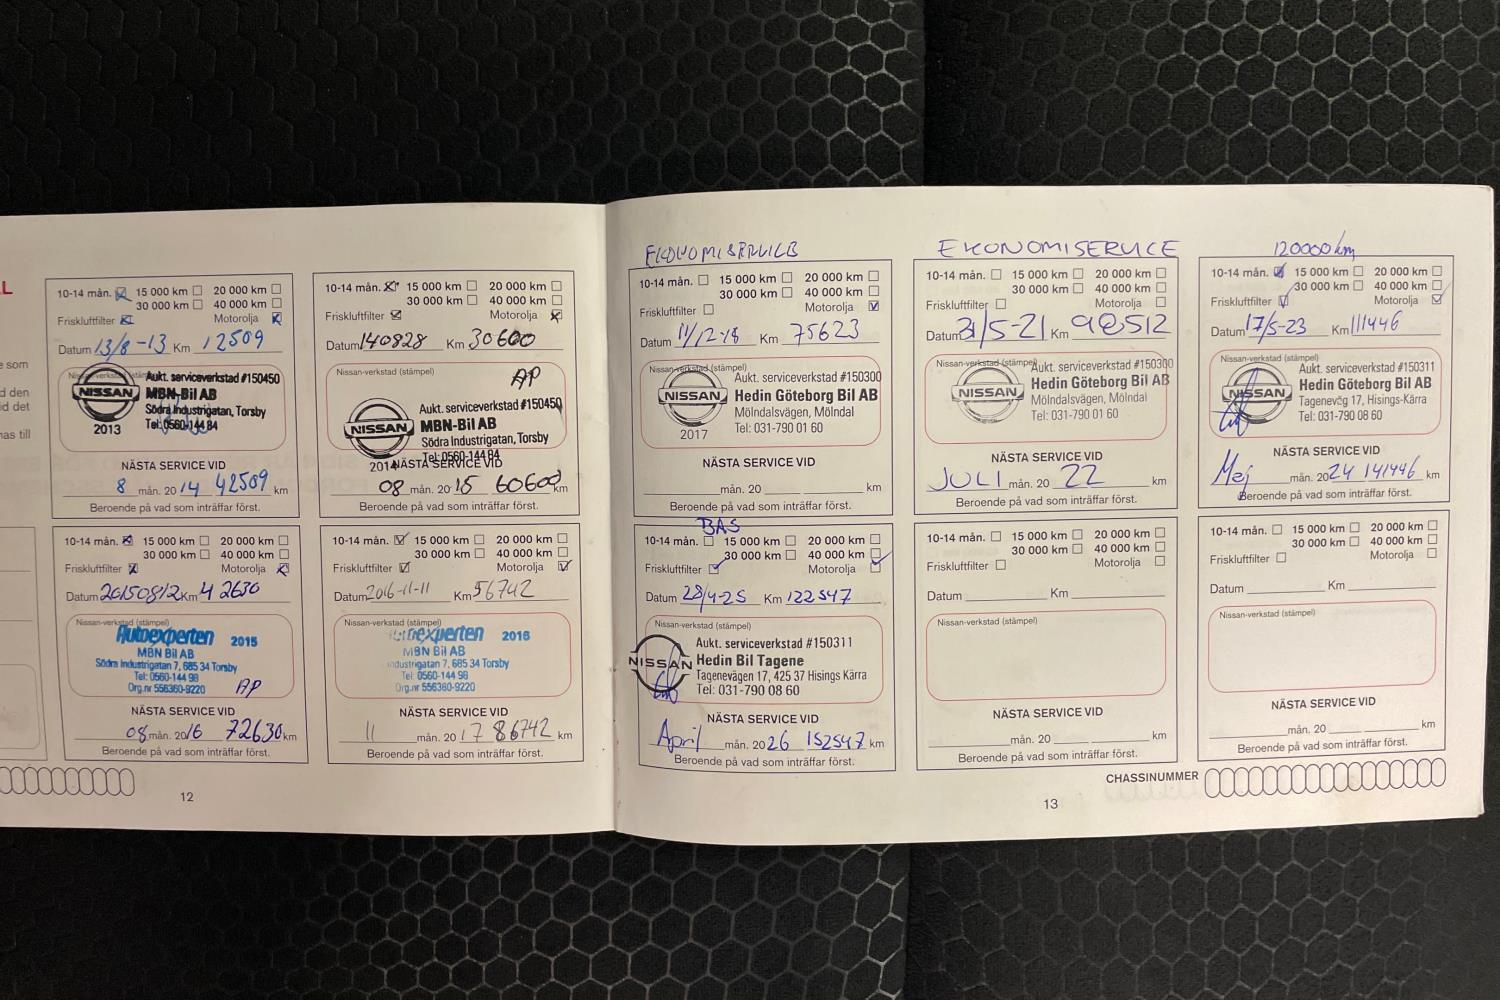 L
e som
d den
id det
nas till
10-14 mån. 15 000 km 20 000 km
30 000 km 40 000 km
Friskluftfilter Motorolja
Datum 13/8-13 Km 12509
Nissan-verkstad (stämpel)
NISSAN
2013
Aukt. serviceverkstad #150450
MBN-Bil AB
Södra Industrigatan, Torsby
Tel: 0560-144 84
NÄSTA SERVICE VID
8 mån. 2014 42509 km
Beroende på vad som inträffar först.
10-14 mån. 15 000 km 20 000 km
30 000 km 40 000 km
Friskluftfilter Motorolja
Datum 140828 Km 30600
Nissan-verkstad (stämpel)
AP
NISSAN
2014
Aukt. serviceverkstad #150450
MBN-Bil AB
Södra Industrigatan, Torsby
Tel: 0560-144 84
NÄSTA SERVICE VID
08 mån. 2015 60600 km
Beroende på vad som inträffar först.
10-14 mån. 15 000 km 20 000 km
30 000 km 40 000 km
Friskluftfilter Motorolja
Datum 20150812 Km 42630
Nissan-verkstad (stämpel)
Autoexperten 2015
MBN Bil AB
Södra Industrigatan 7, 685 34 Torsby
Tel: 0560-144 98
Org.nr 556360-9220
AP
NÄSTA SERVICE VID
08 mån. 2016 72630 km
Beroende på vad som inträffar först.
10-14 mån. 15 000 km 20 000 km
30 000 km 40 000 km
Friskluftfilter Motorolja
Datum 2016-11-11 Km 56742
Nissan-verkstad (stämpel)
Autoexperten 2016
MBN Bil AB
Industrigatan 7, 685 34 Torsby
Tel: 0560-144 98
Org.nr 556360-9220
NÄSTA SERVICE VID
11 mån. 2017 86742 km
Beroende på vad som inträffar först.
12
EKONOMISERVICE
10-14 mån. 15 000 km 20 000 km
30 000 km 40 000 km
Friskluftfilter Motorolja
Datum 11/12-18 Km 75623
Nissan-verkstad (stämpel)
NISSAN
2017
Aukt. serviceverkstad #150300
Hedin Göteborg Bil AB
Mölndalsvägen, Mölndal
Tel: 031-790 01 60
NÄSTA SERVICE VID
mån. 20 km
Beroende på vad som inträffar först.
EKONOMISERVICE
10-14 mån. 15 000 km 20 000 km
30 000 km 40 000 km
Friskluftfilter Motorolja
Datum 31/5-21 Km 98512
Nissan-verkstad (stämpel)
NISSAN
Aukt. serviceverkstad #150300
Hedin Göteborg Bil AB
Mölndalsvägen, Mölndal
Tel: 031-790 01 60
NÄSTA SERVICE VID
JULI mån. 20 22 km
Beroende på vad som inträffar först.
120000 km
10-14 mån. 15 000 km 20 000 km
30 000 km 40 000 km
Friskluftfilter Motorolja
Datum 17/5-23 Km 111446
Nissan-verkstad (stämpel)
NISSAN
Aukt. serviceverkstad #150311
Hedin Göteborg Bil AB
Tageneväg 17, Hisings-Kärra
Tel: 031-790 08 60
NÄSTA SERVICE VID
Mej mån. 2024 141446 km
Beroende på vad som inträffar först.
BAS
10-14 mån. 15 000 km 20 000 km
30 000 km 40 000 km
Friskluftfilter Motorolja
Datum 28/4-25 Km 122547
Nissan-verkstad (stämpel)
NISSAN
Aukt. serviceverkstad #150311
Hedin Bil Tagene
Tagenevägen 17, 425 37 Hisings Kärra
Tel: 031-790 08 60
NÄSTA SERVICE VID
April mån. 2026 152547 km
Beroende på vad som inträffar först.
10-14 mån. 15 000 km 20 000 km
30 000 km 40 000 km
Friskluftfilter Motorolja
Datum Km
Nissan-verkstad (stämpel)
NÄSTA SERVICE VID
mån. 20 km
Beroende på vad som inträffar först.
10-14 mån. 15 000 km 20 000 km
30 000 km 40 000 km
Friskluftfilter Motorolja
Datum Km
Nissan-verkstad (stämpel)
NÄSTA SERVICE VID
mån. 20 km
Beroende på vad som inträffar först.
CHASSINUMMER
13